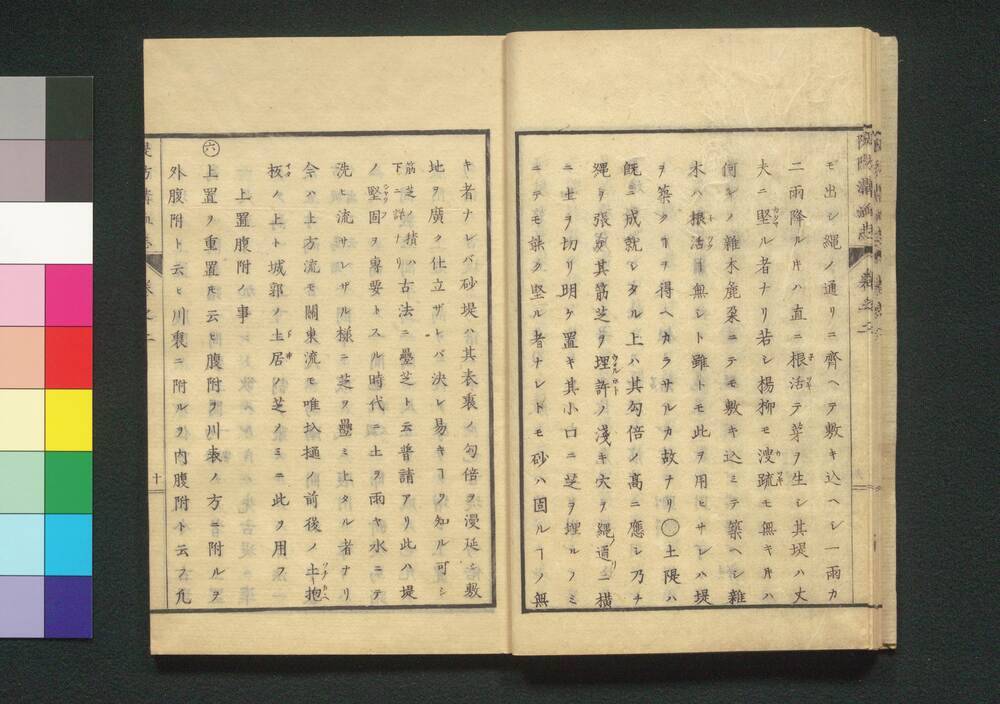 モ出シ縄ノ通リニ齊ヘテ敷キ込ヘシ一雨カ
二雨降ル片ハ直ニ根活テ芽ヲ生シ其堤ハ丈
夫ニ堅ル者ナリ若シ楊柳モ溲疏モ無キ片ハ
何ギノ雜木麁朶ニテモ敷キ込ミテ築ヘシ雜
木ハ根活ヿ無シト雖トモ此ヲ用ヒサレハ堤
ヲ築クヿヲ得ヘカラサルカ故ナリ〇土隄ハ
既ニ成就シタル上ハ其勾倍ノ髙ニ應シ乃チ
縄ヲ張リ其筋芝ヲ埋許ノ淺キ穴ヲ縄通ニ横
ニ土ヲ切リ明ケ置キ其小口ニ芝ヲ埋ルノミ
ニテモ能ク堅ル者ナレトモ砂ハ固ルヿノ無
キ者ナレバ砂堤ハ其表裏ノ勾倍ヲ漫延シ敷
地ヲ廣ク仕立ザレバ決レ易キヿヲ知ル可シ
筋芝ノ積ハ下ニ詳ナリ古法ニ疊芝ト云普請アリ此ハ堤
ノ堅固ヲ專要トスル時代ニ土ヲ雨ヤ水ニテ
洗ヒ流サレザル樣ニ芝ヲ疊ミ上タル者ナリ
今ハ上方流モ關東流モ唯圦樋ノ前後ノ土抱
扨ノ上ト城郭ノ土居ノ芝ノミニ此ヲ用フ
上置腹附ノ事
㊅上置ヲ重置モ云ヒ腹附ヲ川表ノ方ニ附ルヲ
外腹附ト云ヒ川裏ニ附ルヲ内腹附ト云フ凡
十